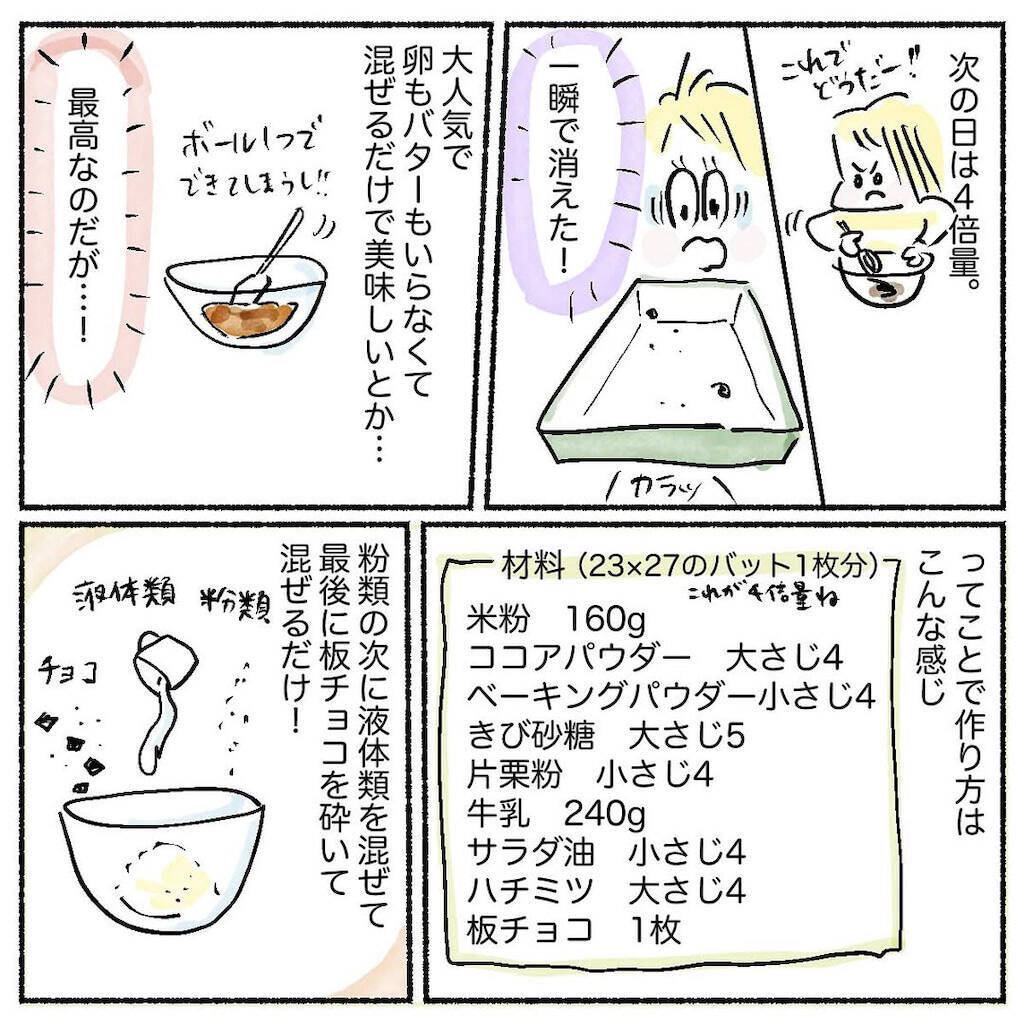 次の日は4倍量。
これで
どうだー!!
一瞬で消えた!
カラッ
大人気で
卵もバターもいらなくて
混ぜるだけで美味しいとか…
ボール1つで
できてしまうし!!
最高なのだが…!
ってことで作り方は
こんな感じ
材料(23×27のバット1枚分)
これが4倍量ね
米粉 160g
ココアパウダー 大さじ4
ベーキングパウダー小さじ4
きび砂糖 大さじ5
片栗粉 小さじ4
牛乳 240g
サラダ油 小さじ4
ハチミツ 大さじ4
板チョコ 1枚
粉類の次に液体類を混ぜて
最後に板チョコを砕いて
混ぜるだけ!
粉類
液体類
チョコ